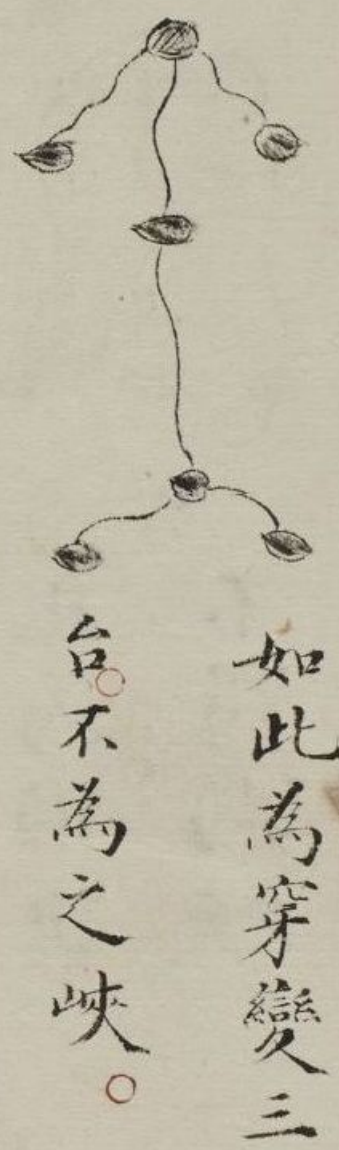 如此為穿變三
台不為之峽